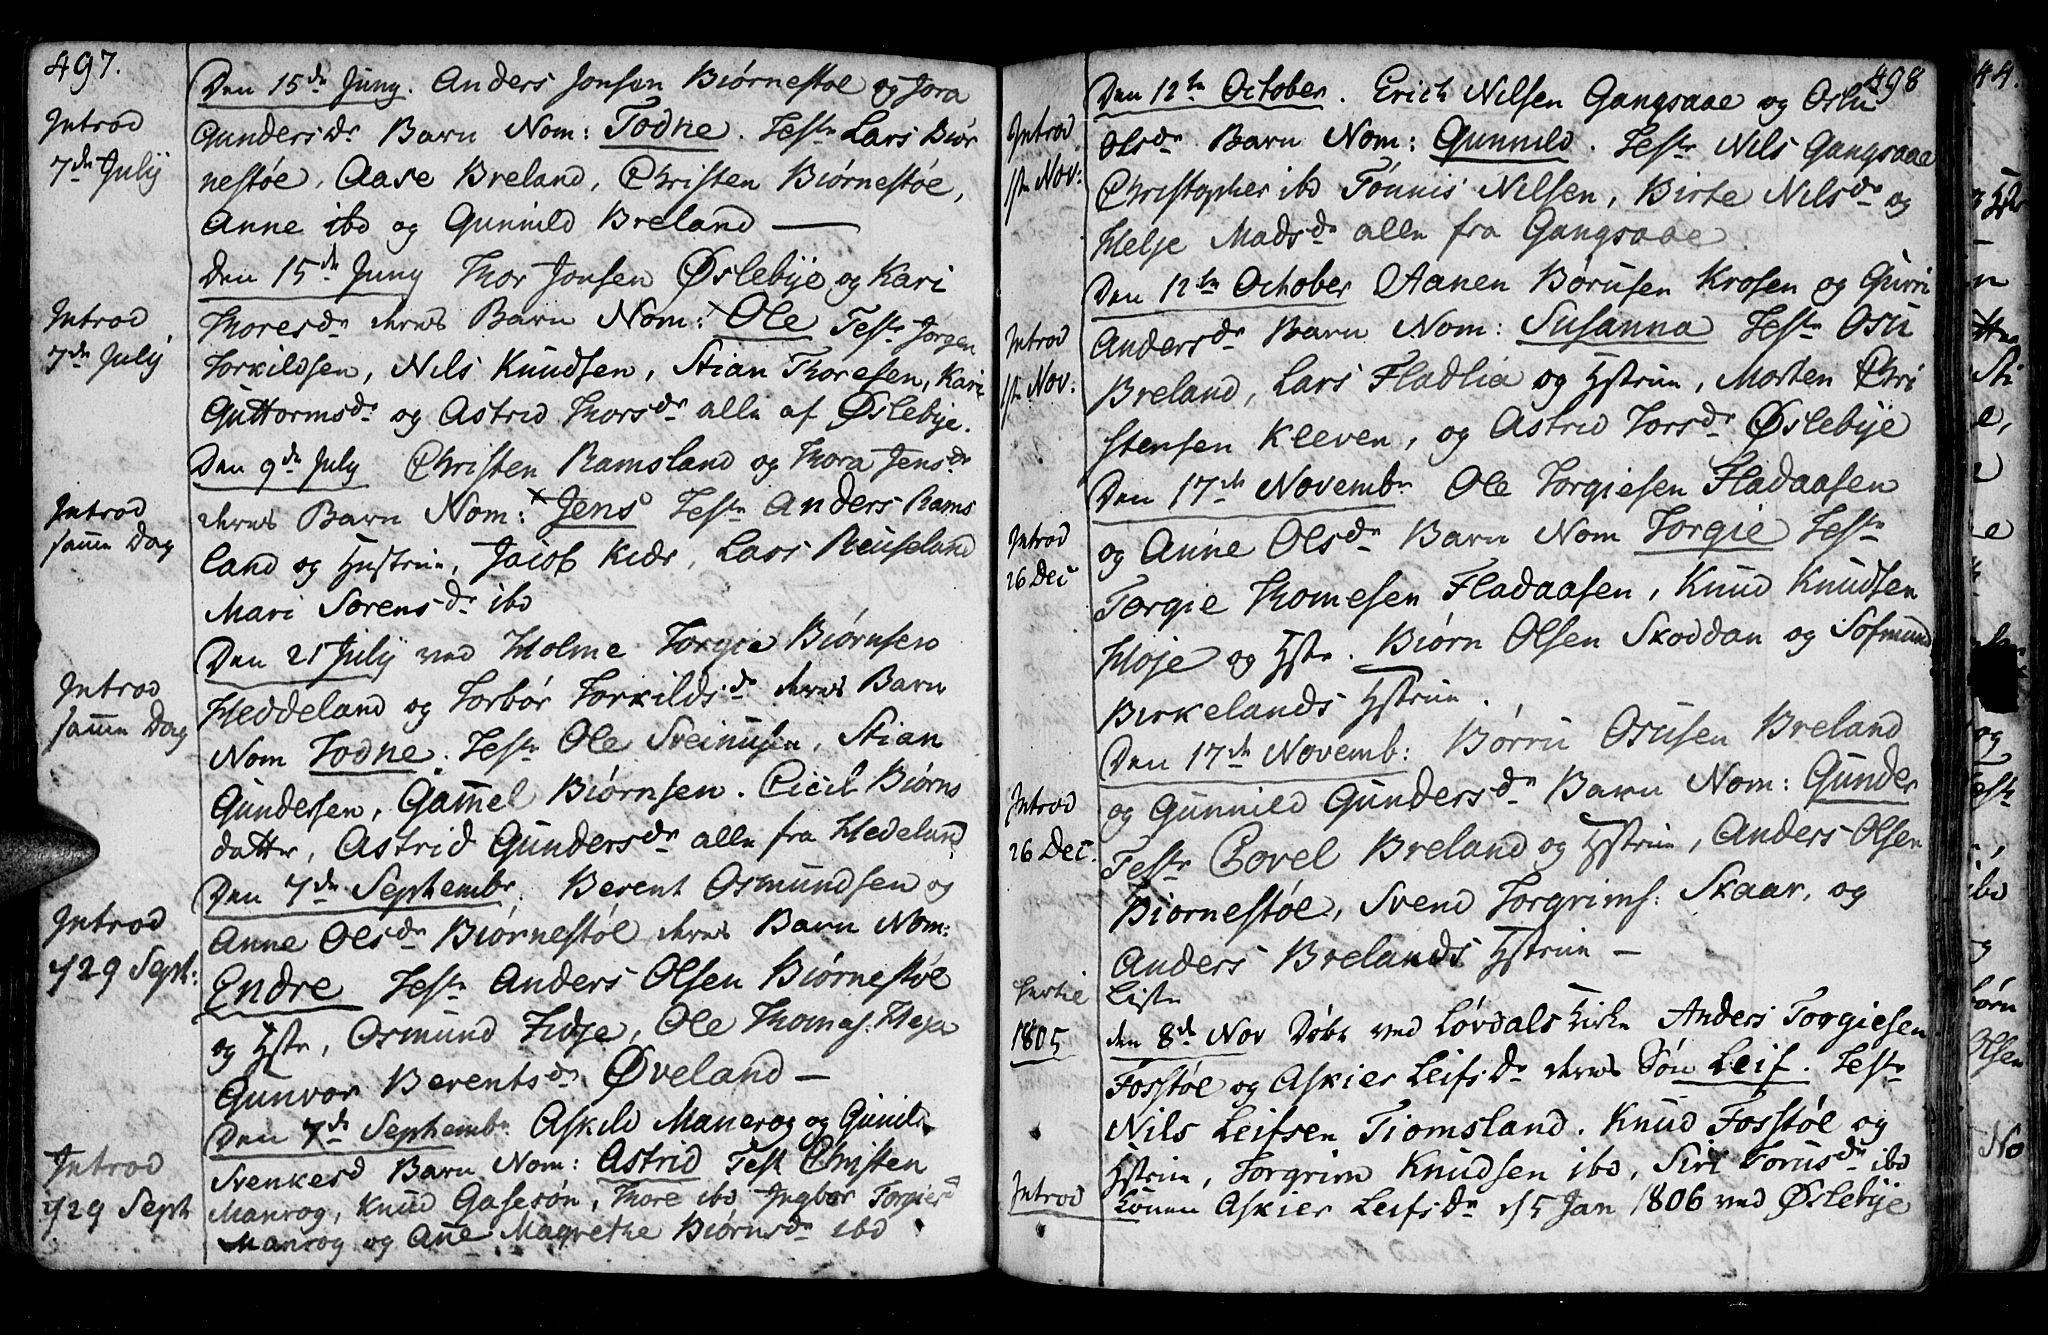 497.
Introd
7de July
Den 15de Juny. Anders Jonsen Biørnestøe og Jora
Gundersdr Barn Nom: Todne. Teste Lars Biør
nestøe, Aase Breland, Christen Biørnestøe,
Anne ibd og Gunnild Breland —
Introd
7de July
Den 15de Juny Thor Jonsen Øslebye og Kari
Thoresdr deres Barn Nom: Ole Teste Jørgen
Torkildsen, Nils Knudsen, Stian Thoresen, Kari
Guttormsdr og Astrid Thorsdr alle af Øslebye.
Introd
samme Dag
Den 9de July Christen Ramsland og Thora Jensdr
deres Barn Nom: Jens Teste Anders Rams
land og Hustrue, Jacob Kidr, Lars Reuseland
Mari Sorensdr ibd
Introd
samme Dag
Den 21 July ved Holme Torgie Biørnsen
Heddeland og Torbør Torkildsdr deres Barn
Nom Todne. Teste Ole Sveinusen, Stian
Gundersen, Gammel Biørnsen. Cicil Biørns
datter, Astrid Gundersdr alle fra Hedeland
Introd
29 Sept:
Den 7de Septembr. Berent Osmundsen og
Anne Olsdr Biørnestøl deres Barn Nom:
Endre Teste Anders Olsen Biørnestøl
og Hstr, Osmund Fidje, Ole Thomas: Heja
Gunvor Berentsdr Øveland —
Introd
29 Sept
Den 7de Septembr Askild Manerog og Gunild
Svenkesd Barn Nom: Astrid Test Christen
Manrog, Knud Gasesøn, Thore ibd Ingbor Torgiersd
Manrog og Anne Magrethe Biørnsdr ibd
498
Introd
1ste Nov:
Den 12te October. Erich Nilsen Gangsaae og Oslu
Olsdr Barn Nom: Gunnild. Teste Nils Gangsaae
Christopher ibd Tönnis Nilsen, Birte Nilsdr og
Helje Madsdr alle fra Gangsaae.
Introd
1ste Nov:
Den 12te October Aanen Børusen Krosen og Gurri
Andersdr Barn Nom: Susanna Teste Osu
Breland, Lars Fladlia og Hstrue, Morten Chri
stensen Kleeven, og Astrid Torsdr Øslebye
Introd
26 Dec
Den 17de Novembr Ole Torgiesen Fladaasen
og Anne Olsdr Barn Nom Torgie Teste
Torgie Thomesen Fladaasen, Knud Knudsen
Høje og Hstr. Biørn Olsen Skoddan og Sofmund
Birkelands Hstrue.
Introd
26 Dec.
Den 17de Novemb: Børru Osusen Breland
og Gunnild Gundersdr Barn Nom: Gunder
Teste Povel Breland og Hstrue, Anders Olsen
Biørnestøe, Svend Torgrims: Skaar, og
Anders Brelands Hstrue —
Liste
1805
den 8de Nov Døbt ved Løvdals Kirke Anders Torgiesen
Fosstøe og Askier Leifsdr deres Søn Leif. Teste
Nils Leifsen Tiomsland. Knud Fosstøl og
Hstrue, Torgrim Knudsen ibd, Siri Torusdr ibd
Introd
Konen Askier Leifsdr d 5 Jan 1806 ved Øslebye